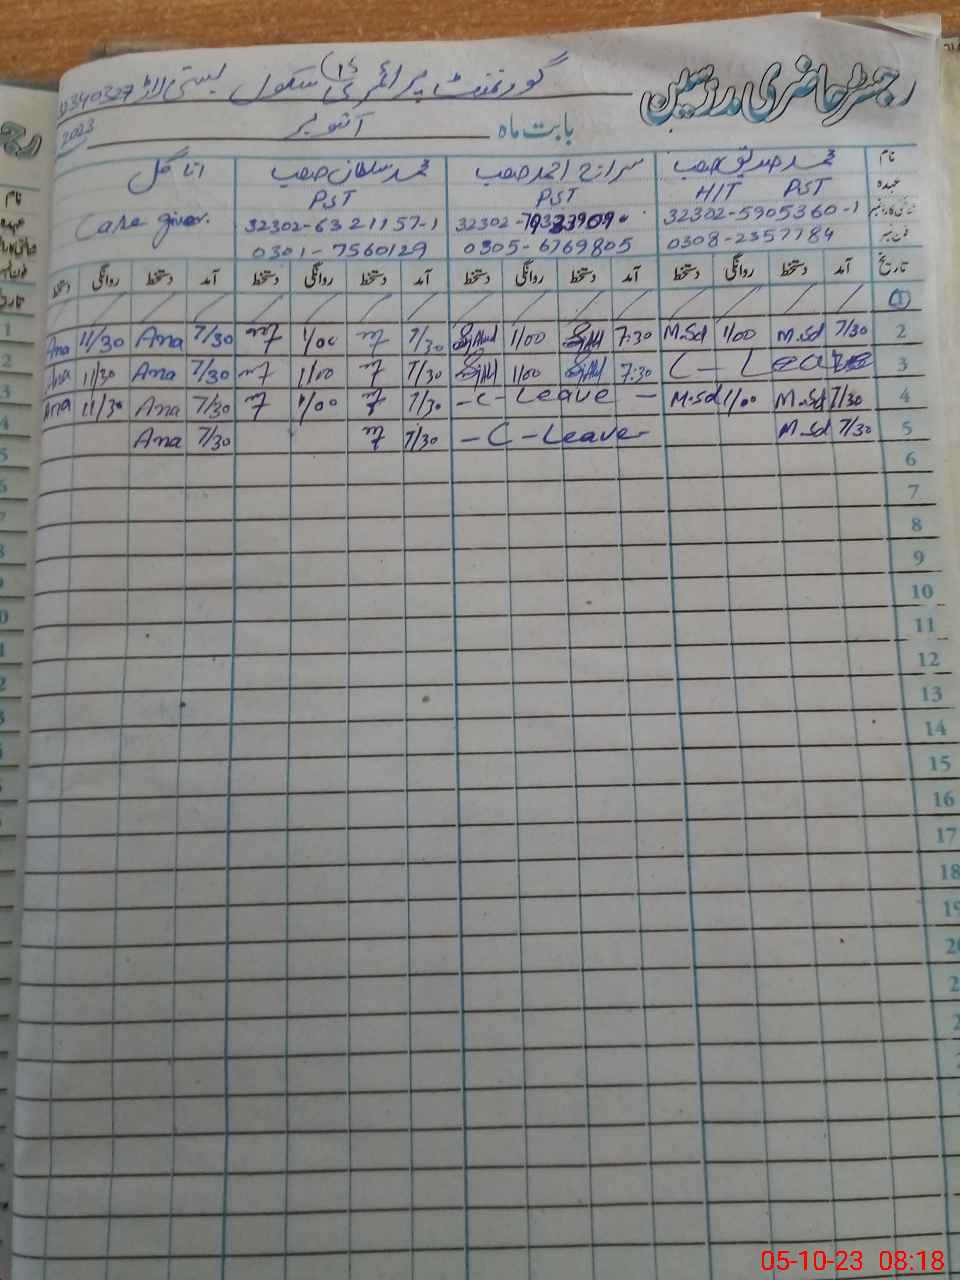 رجسٹر حاضری مدرسین
گورنمنٹ پرائمری سکول بستی
بابت ماہ اکتوبر 2023
نام محمد صدیق صاحب سراج احمد صاحب محمد سلطان صاحب
عہدہ HIT PST PST PST Care giver
32302-5905360-1 32302- 32302-6321157-1
0308-2357784 0305-6769805 0301-7560129
تاریخ آمد دستخط روانگی دستخط آمد دستخط روانگی دستخط آمد دستخط روانگی دستخط آمد دستخط روانگی دستخط
1
2 7/30 M.Sd 1/00 M.Sd 7:30 1/00 7/30 1/00 7/30 Ana 11/30 Ana
3 C - Leave 7:30 1/00 7/30 1/00 7/30 Ana 11/30 Ana
4 7/30 M.Sd 1/00 M.Sd - C - Leave - 7/30 1/00 7/30 Ana 11/30 Ana
5 7/30 M.Sd - C - Leave - 7/30 7/30 Ana
6
7
8
9
10
11
12
13
14
15
16
17
18
05-10-23 08:18